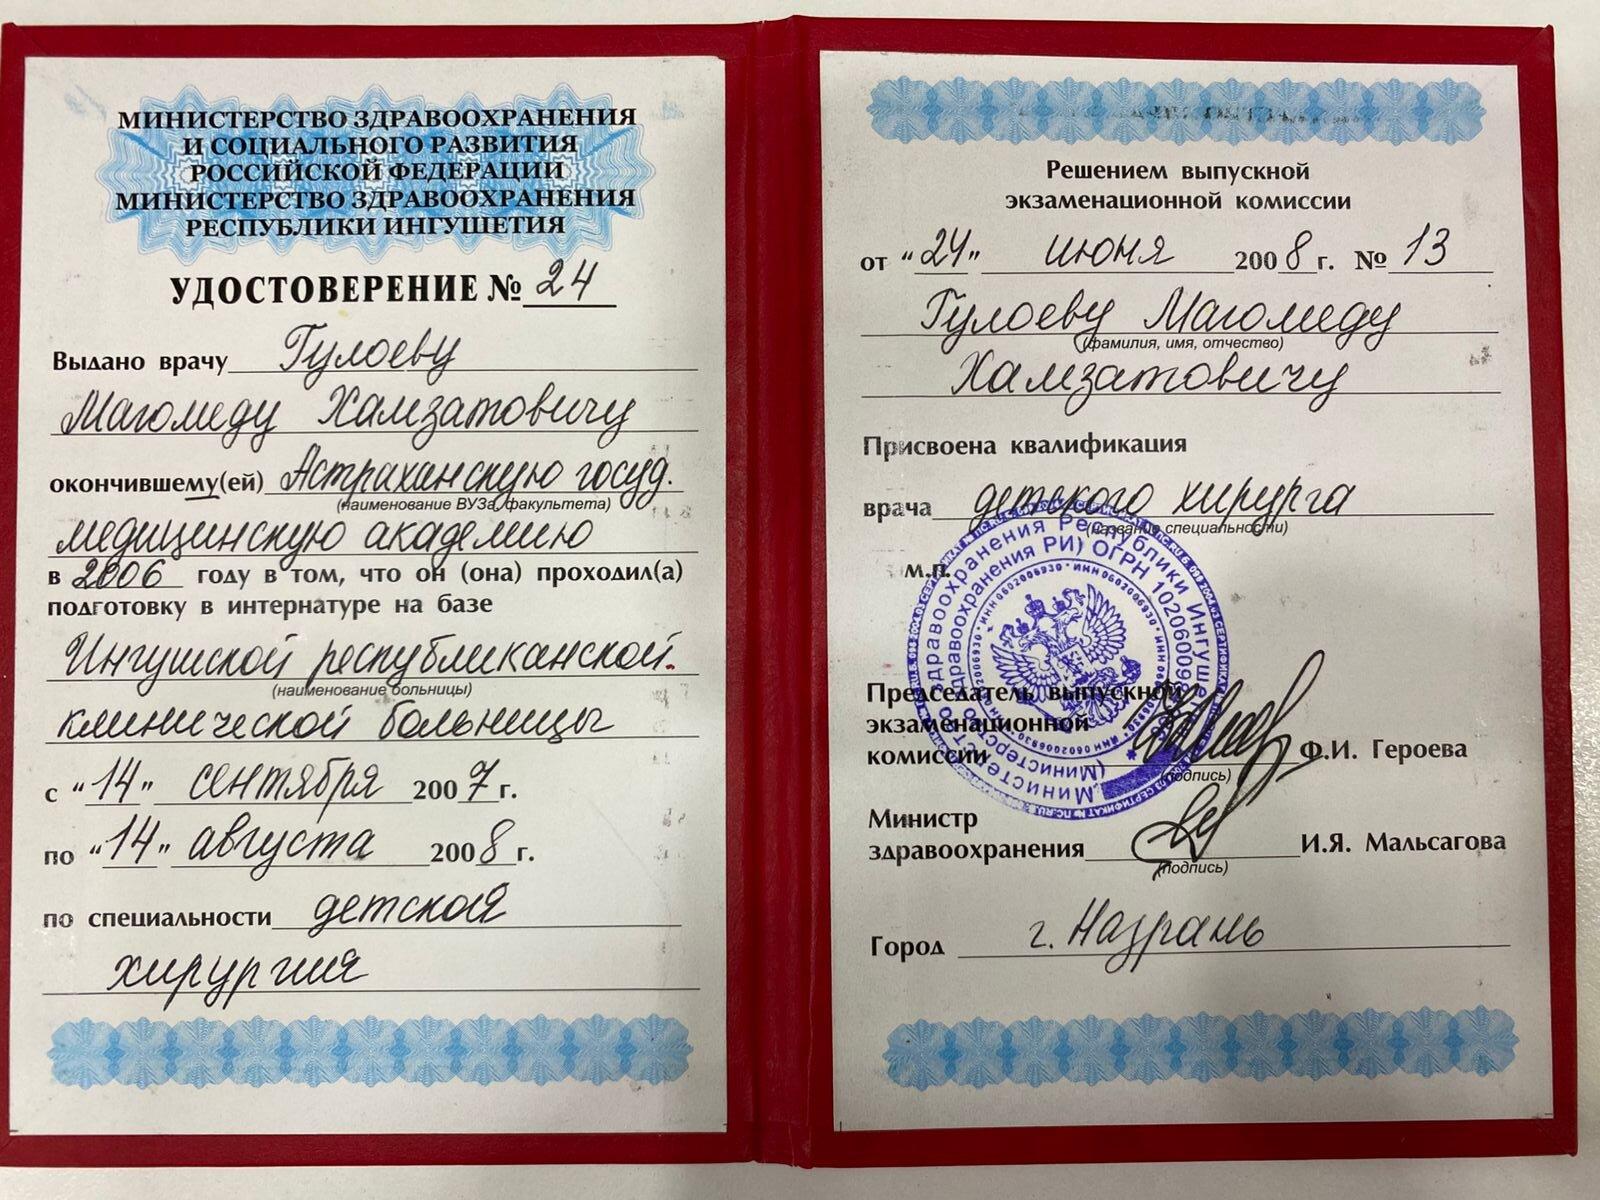 МИНИСТЕРСТВО ЗДРАВООХРАНЕНИЯ
И СОЦИАЛЬНОГО РАЗВИТИЯ
РОССИЙСКОЙ ФЕДЕРАЦИИ
МИНИСТЕРСТВО ЗДРАВООХРАНЕНИЯ
РЕСПУБЛИКИ ИНГУШЕТИЯ
УДОСТОВЕРЕНИЕ № 24
Выдано врачу Гулоеву
Магомеду Хамзатовичу
окончившему(ей) Астраханскую госуд.
(наименование ВУЗа, факультета)
медицинскую академию
в 2006 году в том, что он (она) проходил(а)
подготовку в интернатуре на базе
Ингушской республиканской
(наименование больницы)
клинической больницы
с "14" сентября 2007 г.
по "14" августа 2008 г.
по специальности детская
хирургия
Решением выпускной
экзаменационной комиссии
от "24" июня 2008 г. № 13
Гулоеву Магомеду
(фамилия, имя, отчество)
Хамзатовичу
Присвоена квалификация
врача детского хирурга
(название специальности)
м.п.
Министерство здравоохранения Республики Ингушетия
(Министерство здравоохранения РИ) ОГРН
ИНН 0602006930
Председатель выпускной
экзаменационной
комиссии Ф.И. Героева
(подпись)
Министр
здравоохранения И.Я. Мальсагова
(подпись)
Город г. Назрань